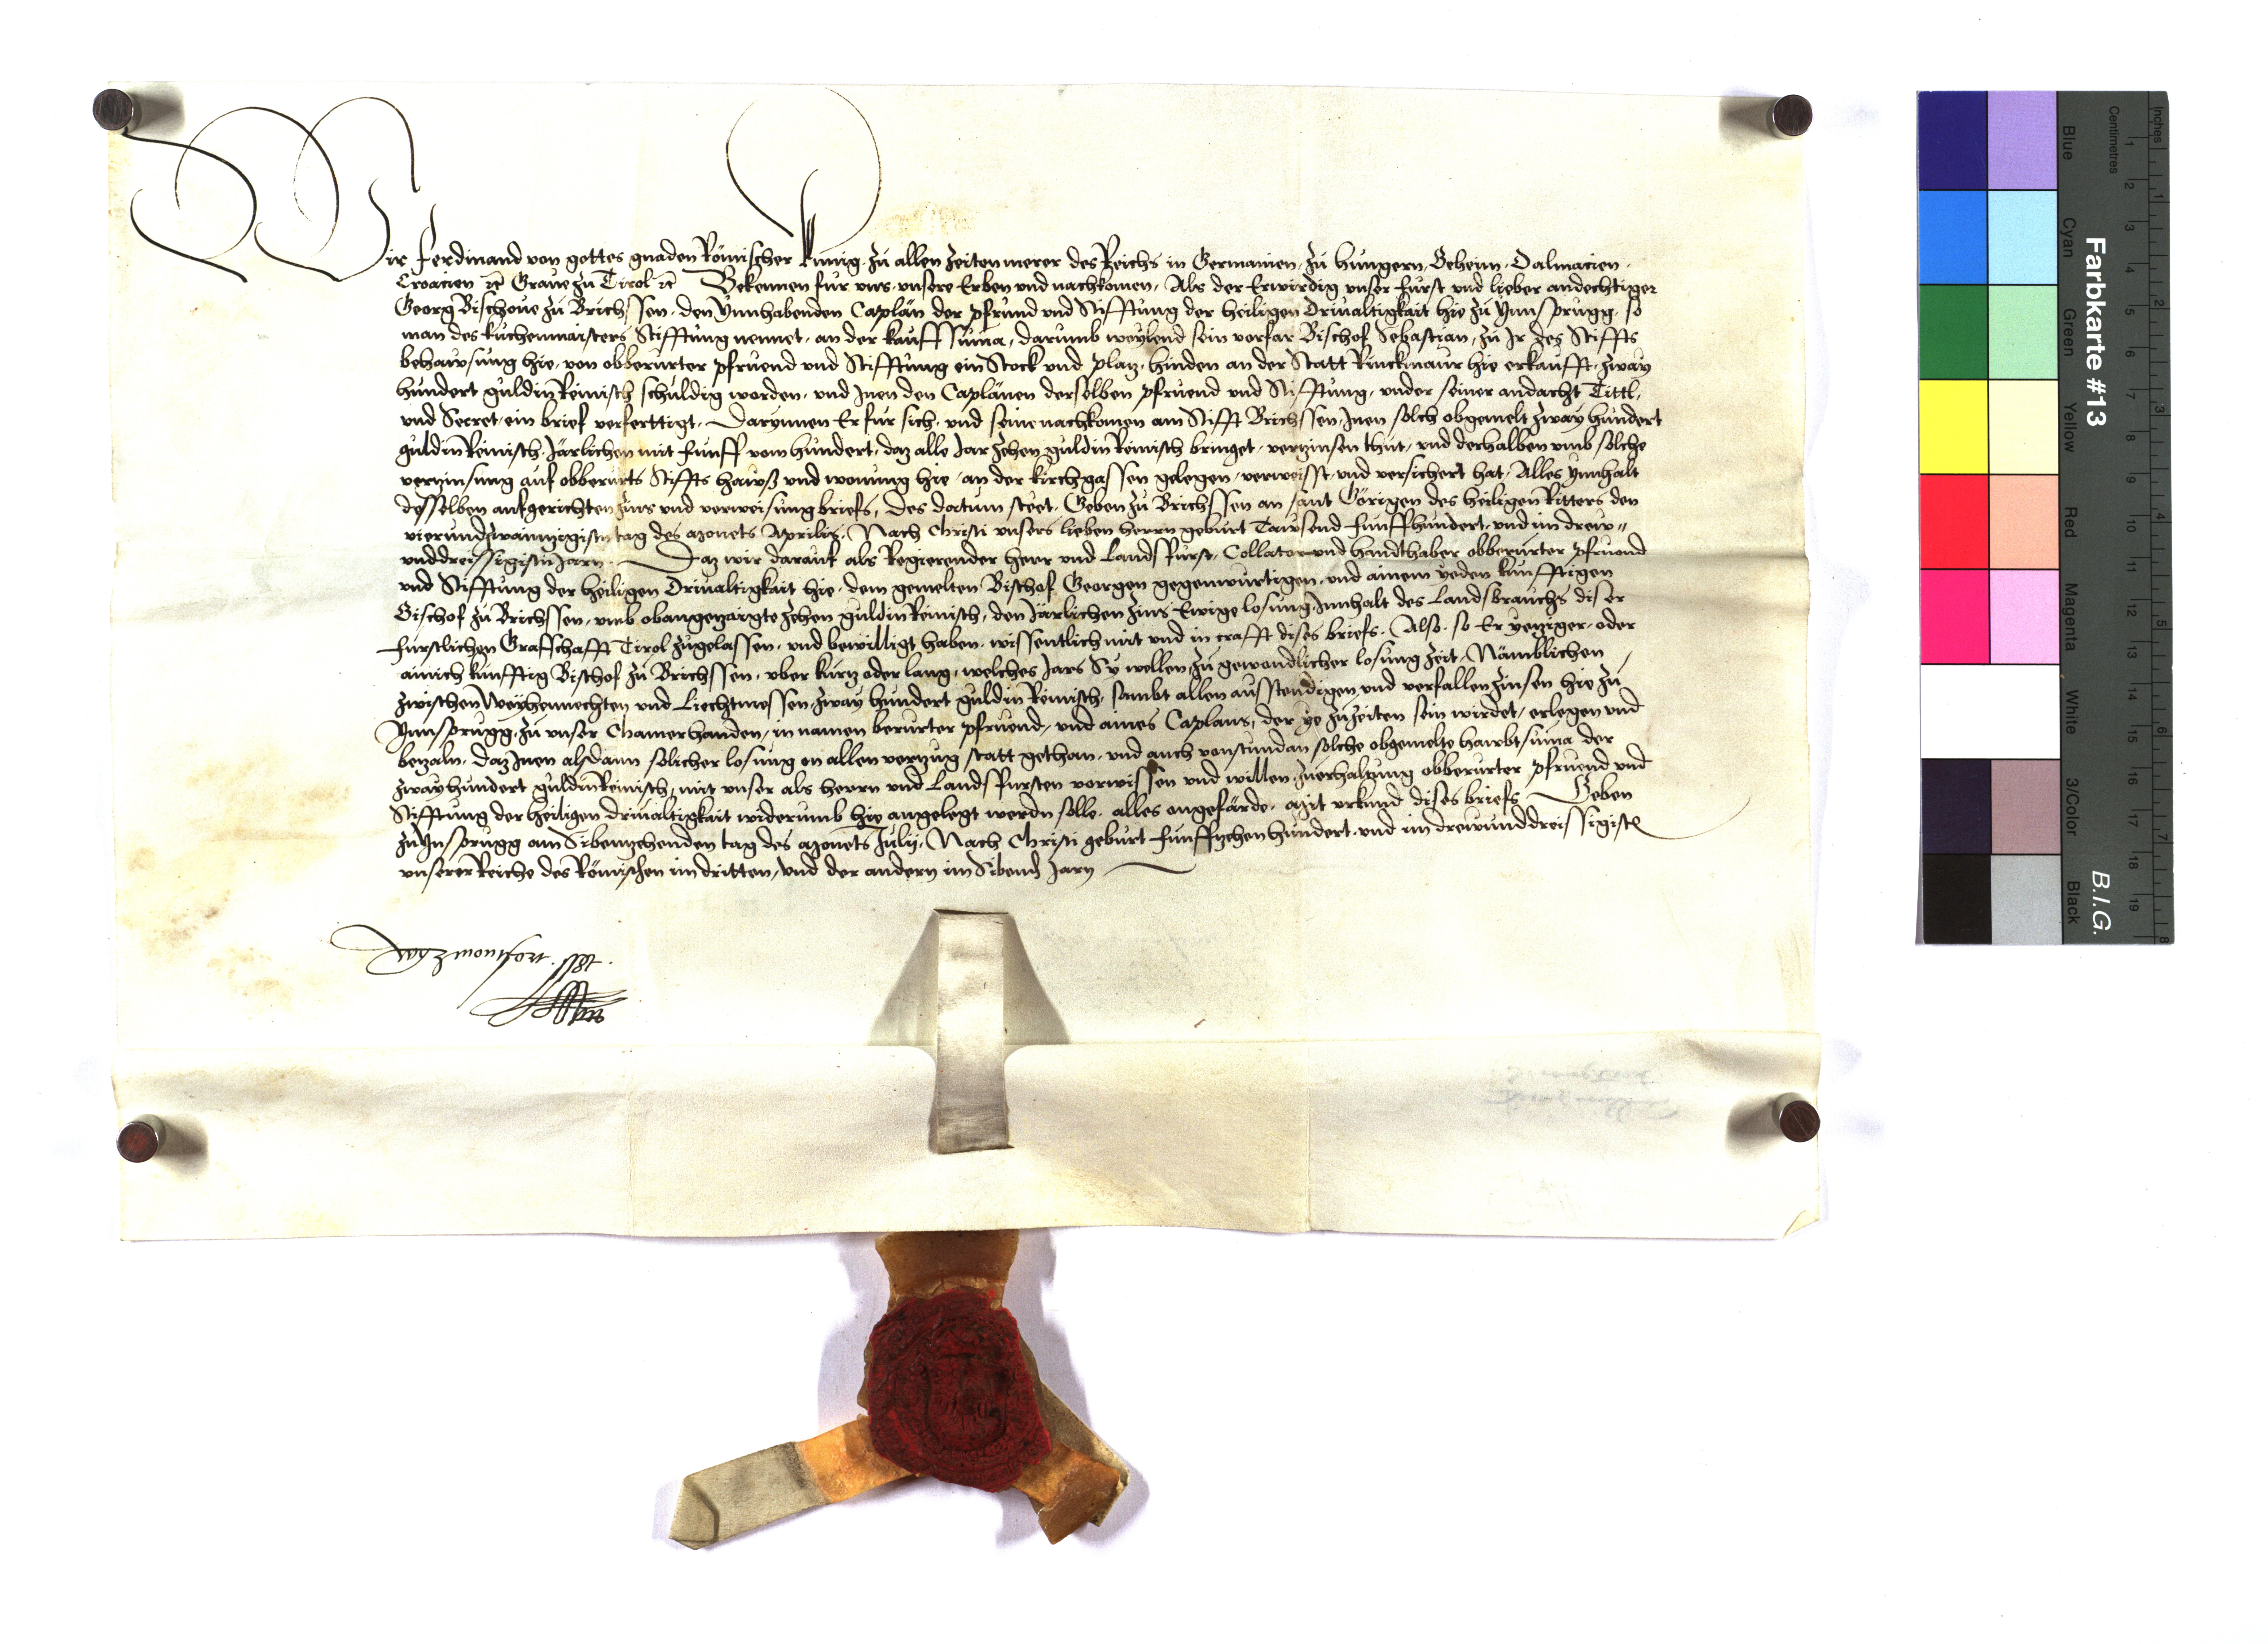 Wir Ferdinand von gottes gnaden Römischer Kunig zu allen zeiten merer des Reichs in Germanien zu hungern Beheim Dalmacien
Croacien etc Graue zu Tirol etc Bekennen für vns vnsere Erben vnd nachkomen Als der Erwirdig vnser fürst vnd lieber andechtiger
Georg Bischoue zu Brichssen den Ynnhabenden Caplän der pfrund vnd Stifftung der heiligen Driualtigkait hie zu Ynnsprugg so
man des kuchenmaisters Stifftung nennet an der kauffsuma darumb weylend sein vorfar Bischof Sebastian zu Jr des Stiffts
behawsung hie von obberürter pfruend vnd Stifftung ein Stock vnd platz hinden an der Statt Rinckmaur hie erkaufft zway
hundert guldin Reinisch schuldig worden vnd Jnen den Caplänen derselben pfruend vnd Stifftung vnder seiner andacht Tittl
vnd Secret ein brief verferttigt Darynnen Er für sich vnd seine nachkomen am Stifft Brichssen Jnen solch obgemelt zway hundert
guldin Reinisch Järlichen mit fünff vom hundert daz alle Jar zehen guldin Reinisch bringet verzinsen thut vnd derhalben vmb solche
verzinsung auf obberürts Stiffts hawß vnd wonung hie an der kirchgassen gelegen verweisst vnd versichert hat Alles ynnhalt
desselben aufgerichten zins vnd verweisungbriefs des datum steet Geben zu Brichssen an sant Görigen des heiligen Ritters den
vierundzwanntzigisten tag des Monets Aprilis Nach Christi vnsers lieben herrn geburt Tawsend funffhundert vnd im drew
vnddreissigisten Jarn Daz wir darauf als Regierender herr vnd Landsfürst Collator vnd handthaber obberürter pfruend
vnd Stifftung der heiligen Driualtigkait hie dem gemelten Bischof Georgen gegenwurtigen vnd ainem yeden kunfftigen
Bischof zu Brichssen vmb obangezaigte zehen guldin Reinisch den Järlichen zins Ewige losung Jnnhalt des Landsbrauchs diser
fürstlichen Grafschafft Tirol zugelassen vnd bewilligt haben wissentlich mit vnd in crafft dises briefs Also so Er yetziger oder
ainich kunfftig Bischof zu Brichssen vber kurtz oder lang welches Jars Sy wellen zu gewondlicher losung zeit Nämblichen
zwischen Weyhennechten vnd Liechtmessen zway hundert guldin Reinisch sambt allen ausstendigen vnd verfallen zinsen hie zu
Ynnsprugg zu vnser Chamer handen in namen berürter pfruend vnd aines Caplans der ye zuzeiten sein wirdet erlegen vnd
bezaln daz Jnen alsdann solicher losung on allen verzug statt gethan vnd auch vonstundan solche obgemelte hawbtsuma der
zway hundert guldin Reinisch mit vnser als herrn vnd Landsfürsten vorwissen vnd willen zu erhaltung obberürter pfruend vnd
Stifftung der heiligen driualtigkait widerumb hie angelegt werdn solle alles ongefärde Mit vrkund dises briefs Geben
zu Ynsprugg am Sibentzehenden tag des Monets Julij Nach Christi geburt funfftzehenhundert vnd im drewunddreissigisten
vnserer Reiche des Römischen im dritten vnd der andern im Sibenden Jarn
Farbkarte #13
B.I.G.
Inches
Centimetres
Blue
Cyan
Green
Yellow
Red
Magenta
White
3/Color
Black
1 2 3 4 5 6 7 8 9 10 11 12 13 14 15 16 17 18 19
1 2 3 4 5 6 7 8